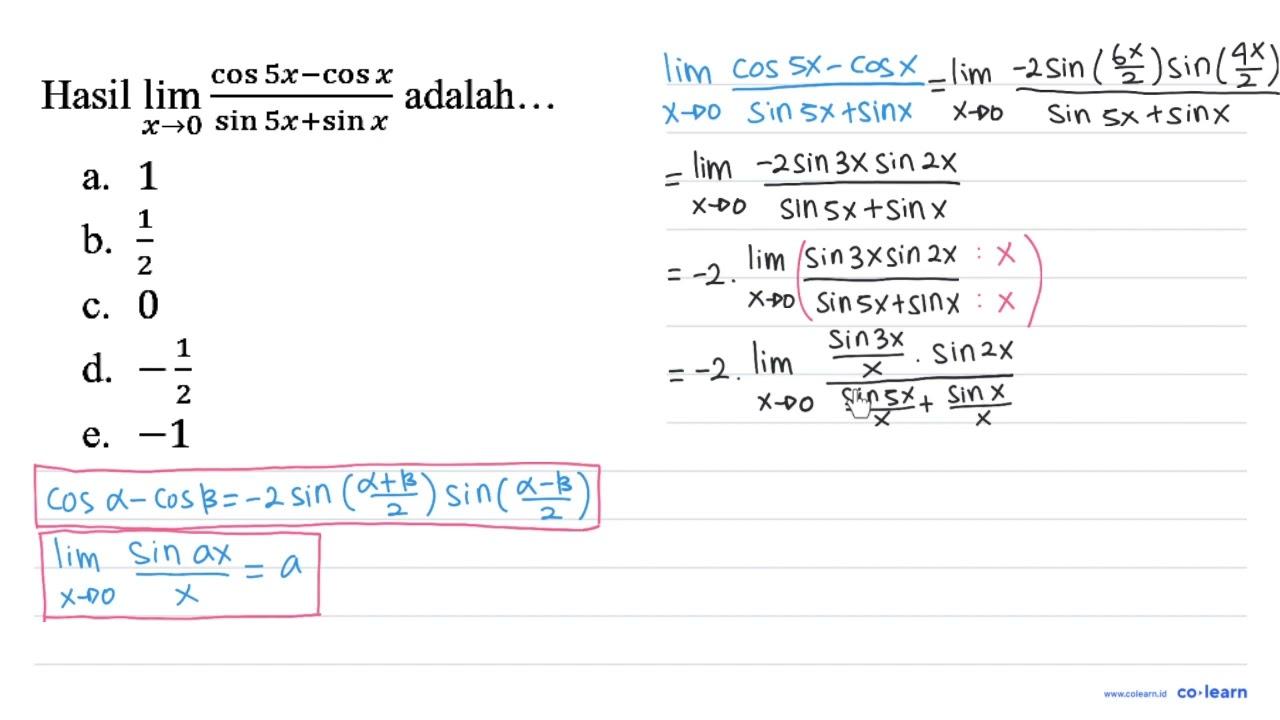 Hasil lim x→0 (cos 5x−cos x)/(sin 5x+sin x) adalah...
a. 1
b. 1/2
c. 0
d. −1/2
e. −1
cos α − cos β = −2 sin (α+β/2) sin (α−β/2)
lim x→0 sin ax/x = a
lim x→0 (cos 5x − cos x)/(sin 5x + sin x) = lim x→0 (−2 sin (6x/2) sin (4x/2))/(sin 5x + sin x)
= lim x→0 (−2 sin 3x sin 2x)/(sin 5x + sin x)
= −2 . lim x→0 (sin 3x sin 2x : x / sin 5x + sin x : x)
= −2 . lim x→0 (sin 3x/x . sin 2x)/(sin 5x/x + sin x/x)
www.colearn.id co·learn